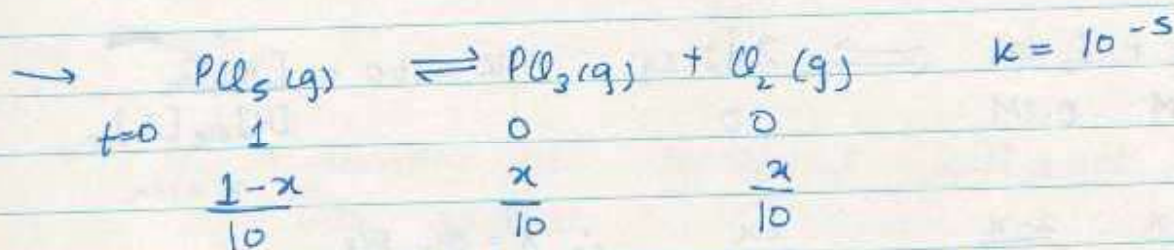 → PCl₅ (g) ⇌ PCl₃ (g) + Cl₂ (g) k = 10⁻⁵
t=0 1 0 0
1-x/10 x/10 x/10